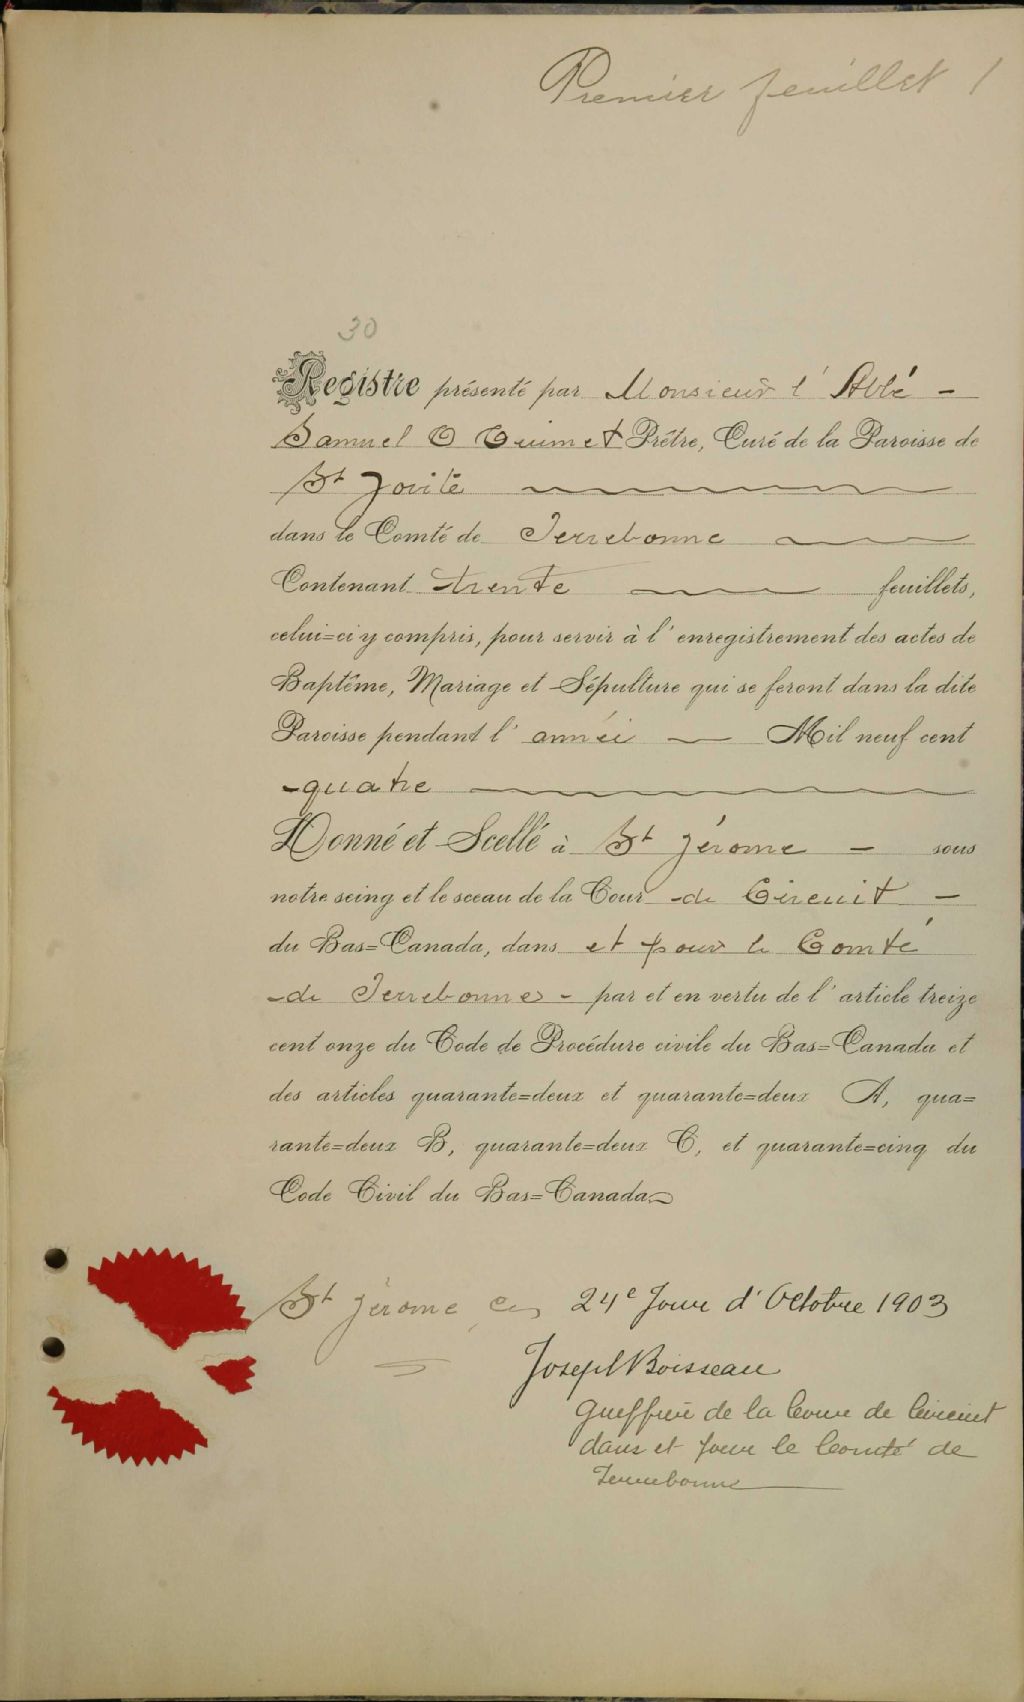 Premier feuillet 1
30
Registre présenté par Monsieur l'Abbé -
Samuel O Ouimet Prêtre, Curé de la Paroisse de
St Jovite
dans le Comté de Terrebonne
Contenant trente feuillets,
celui=ci y compris, pour servir à l'enregistrement des actes de
Baptême, Mariage et Sépulture qui se feront dans la dite
Paroisse pendant l'année — Mil neuf cent
-quatre
Donné et Scellé à St Jérome - sous
notre seing et le sceau de la Cour -de Circuit -
du Bas=Canada, dans et pour le Comté
-de Terrebonne - par et en vertu de l'article treize
cent onze du Code de Procédure civile du Bas=Canada et
des articles quarante=deux et quarante=deux A, qua=
rante=deux B, quarante=deux C, et quarante=cinq du
Code Civil du Bas=Canada.
St Jérome ce 24e Jour d'Octobre 1903
Joseph Boisseau
Greffier de la Cour de Circuit
dans et pour le Comté de
Terrebonne